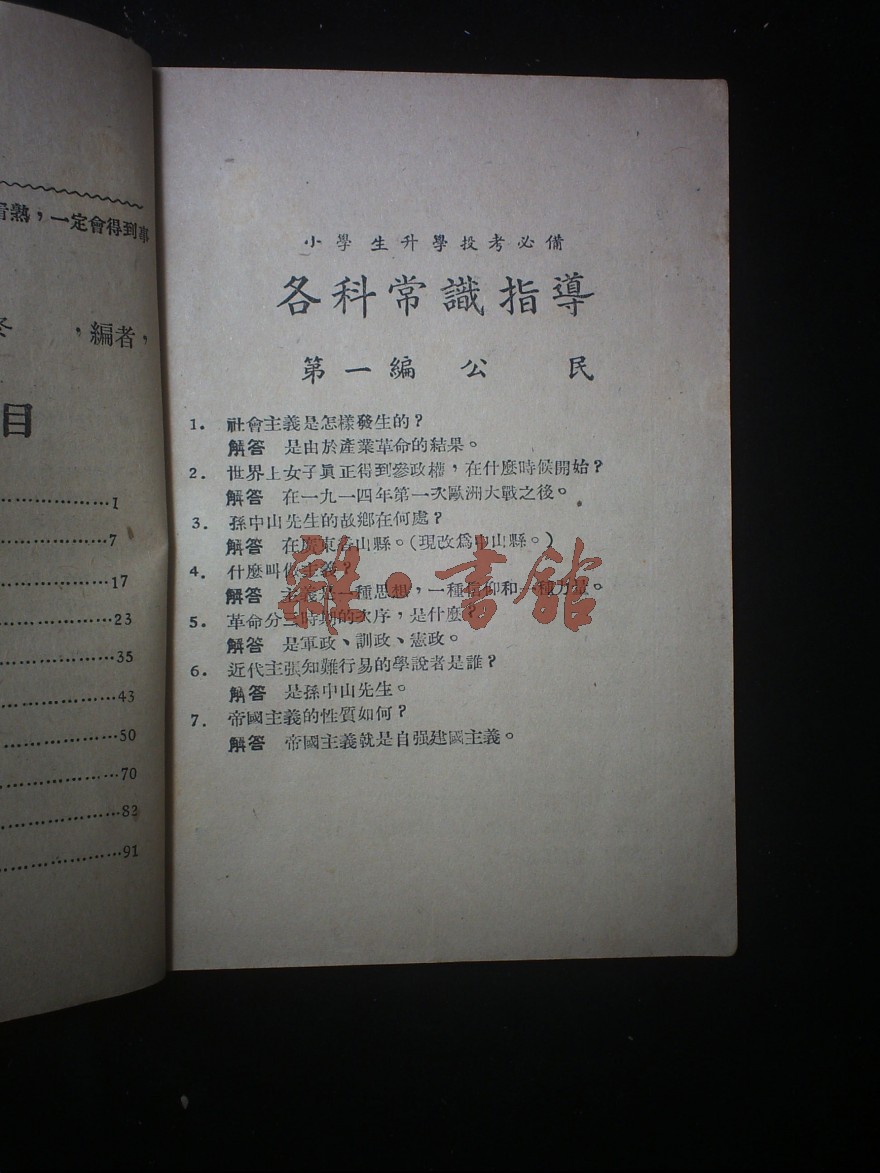 看熟，一定會得到事
，編者，
目
1
7
17
23
35
43
50
70
82
91
小學生升學投考必備
各科常識指導
第一編 公民
1. 社會主義是怎樣發生的？
解答 是由於產業革命的結果。
2. 世界上女子眞正得到參政權，在什麼時候開始？
解答 在一九一四年第一次歐洲大戰之後。
3. 孫中山先生的故鄉在何處？
解答 在廣東香山縣。(現改爲中山縣。)
4. 什麼叫做主義？
解答 主義是一種思想，一種信仰和一種力量。
5. 革命分三時期的次序，是什麼？
解答 是軍政、訓政、憲政。
6. 近代主張知難行易的學說者是誰？
解答 是孫中山先生。
7. 帝國主義的性質如何？
解答 帝國主義就是自强建國主義。
雜·書館